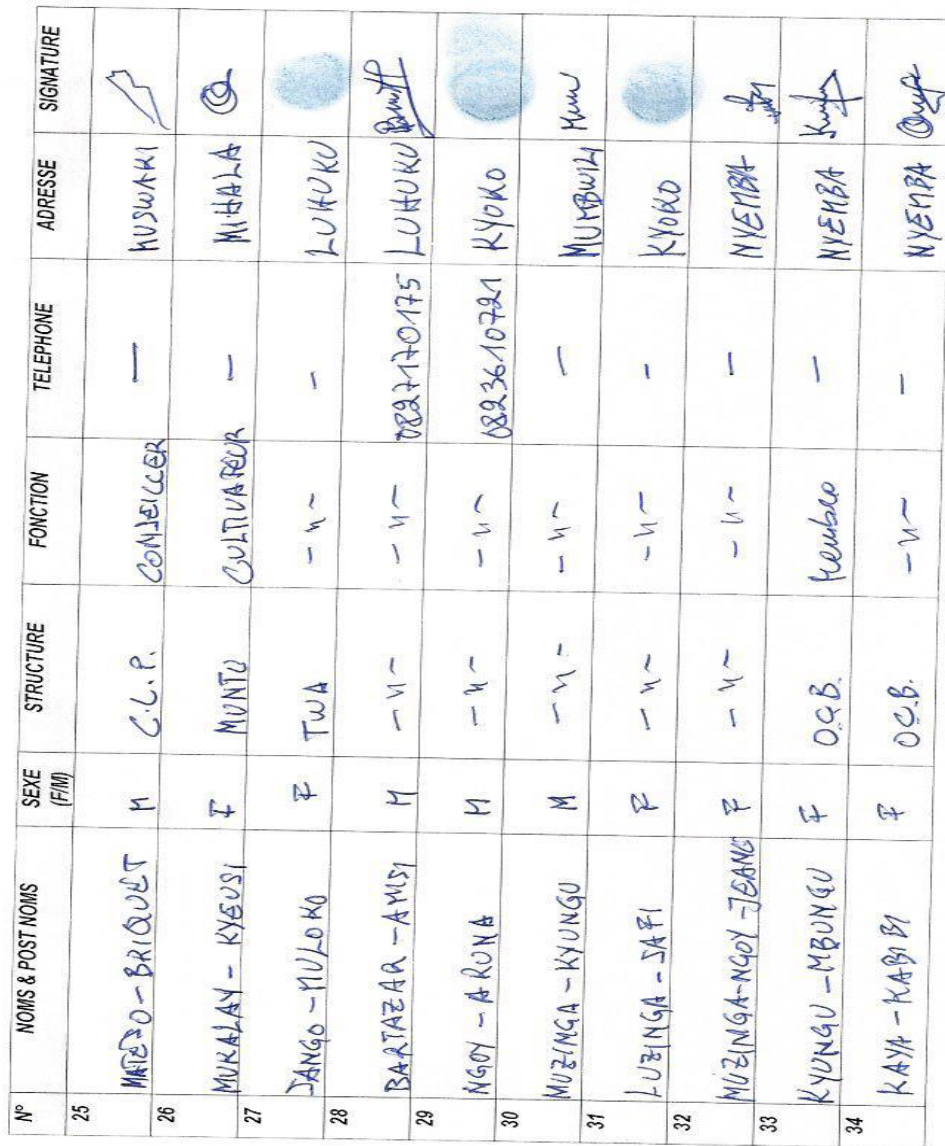 N° NOMS & POST NOMS SEXE (F/M) STRUCTURE FONCTION TELEPHONE ADRESSE SIGNATURE
25 MATESO-BRIQUET M C.L.P. CONSEILLER — MUSWAKI
26 MUKALAY-KYEUSI F MUNTU CULTIVATEUR — MIHALA
27 JANGO-MULOKO F TWA -"- — LUHUKU
28 BARTAZAR-AMISI M -"- -"- 0827170175 LUHUKU
29 NGOY-ARUNA M -"- -"- 0823610721 KYOKO
30 MUZINGA-KYUNGU M -"- -"- — MUMBWILI
31 LUZINGA-SAFI F -"- -"- — KYOKO
32 MUZINGA-NGOY-JEANNE F -"- -"- — NYEMBA
33 KYUNGU-MBUNGU F O.C.B. Membre — NYEMBA
34 KAYA-KABIBI F O.C.B. -"- — NYEMBA